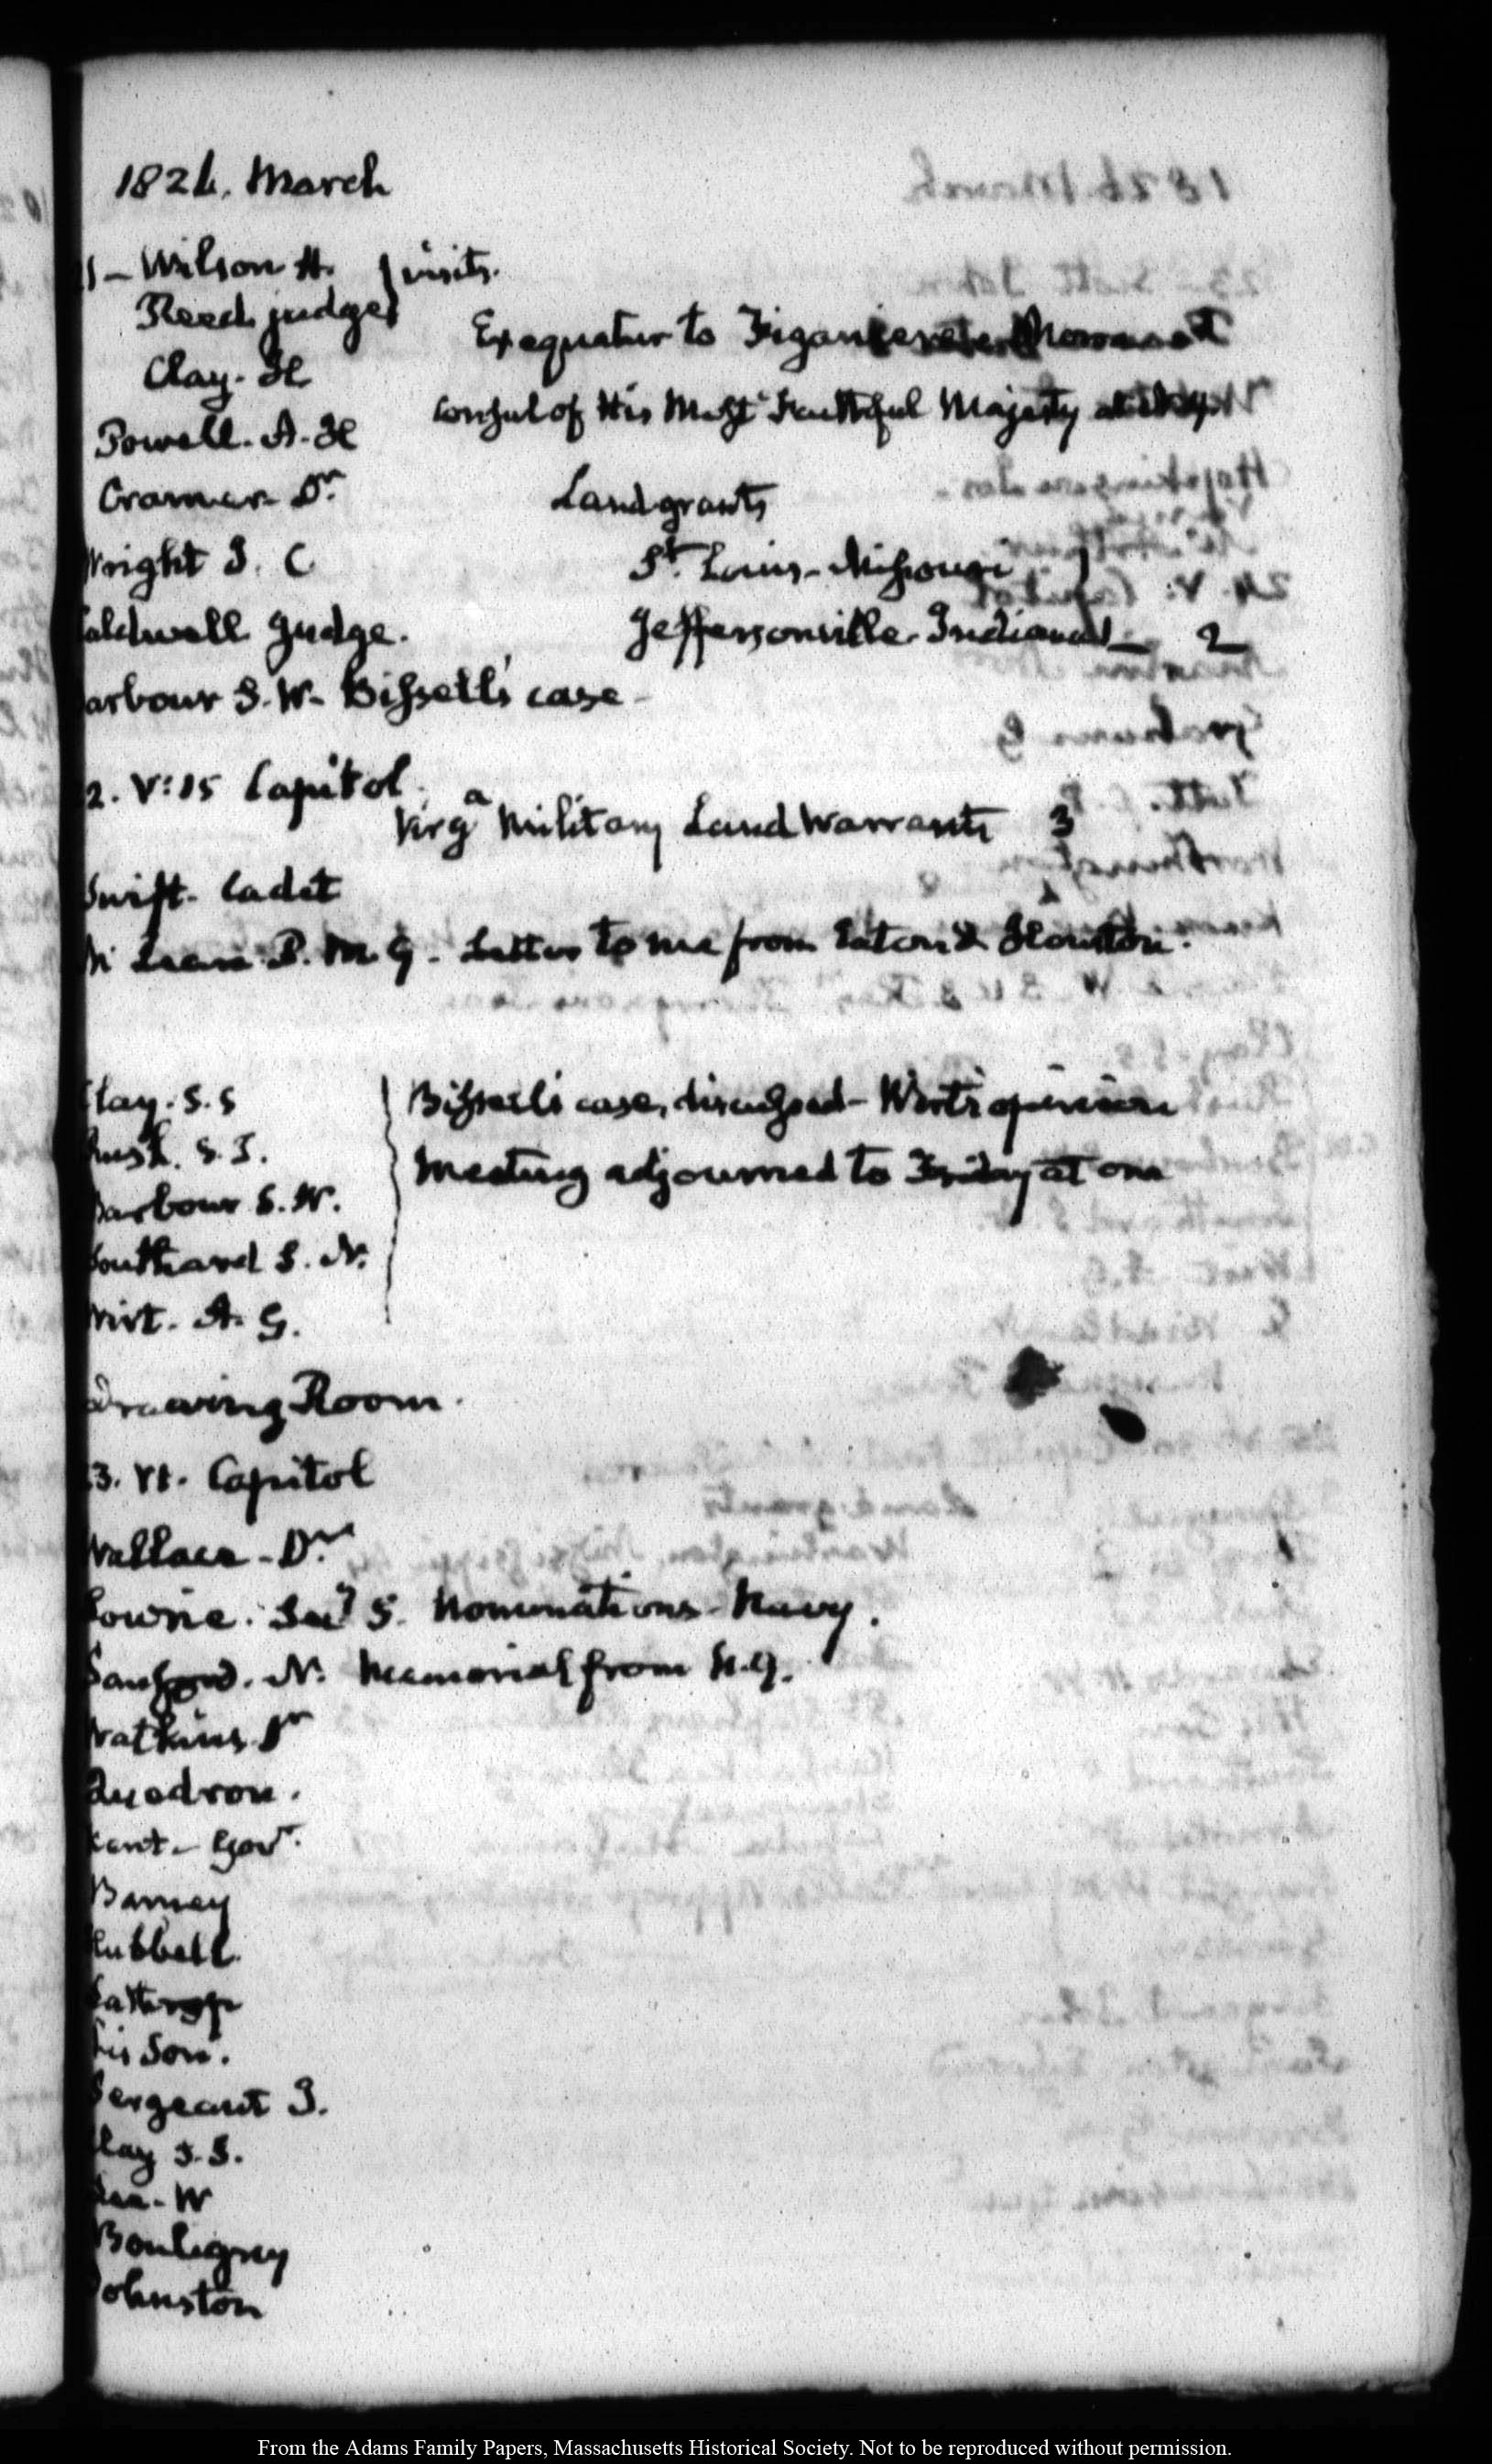 1826. March
1 — Wilson H. } visits.
Reed judge
Exequatur to
Clay. H
Consul of His Most Faithful Majesty at
Powell. A. H
Cramer Dr.
Land grants
Wright J. C
St. Louis - Missouri 1
Caldwell Judge.
Jeffersonville - Indiana 1 — 2
Barbour S. W. Bissell's case -
2. V:15 Capitol.
Virga Military Land Warrants 3
Swift. Cadet
McLean P. M. G. Letter to me from Eaton & Houston.
Clay. S. S
Bissell's case, discussed - Wirt's opinion
Rush. S. T.
Meeting adjourned to Friday at one
Barbour S. W.
Southard S. N.
Wirt. A. G.
Drawing Room.
3. VI. Capitol
Wallace - Dr.
Lowrie. Secy S. Nominations - Navy.
Sanford. N. Memorial from N.Y.
Watkins Dr
Quedron.
Kent - Govr.
Barney
Hubbell
his Son.
Sergeant J.
Clay S. S.
Lee - W
Bouligny
Johnston
From the Adams Family Papers, Massachusetts Historical Society. Not to be reproduced without permission.